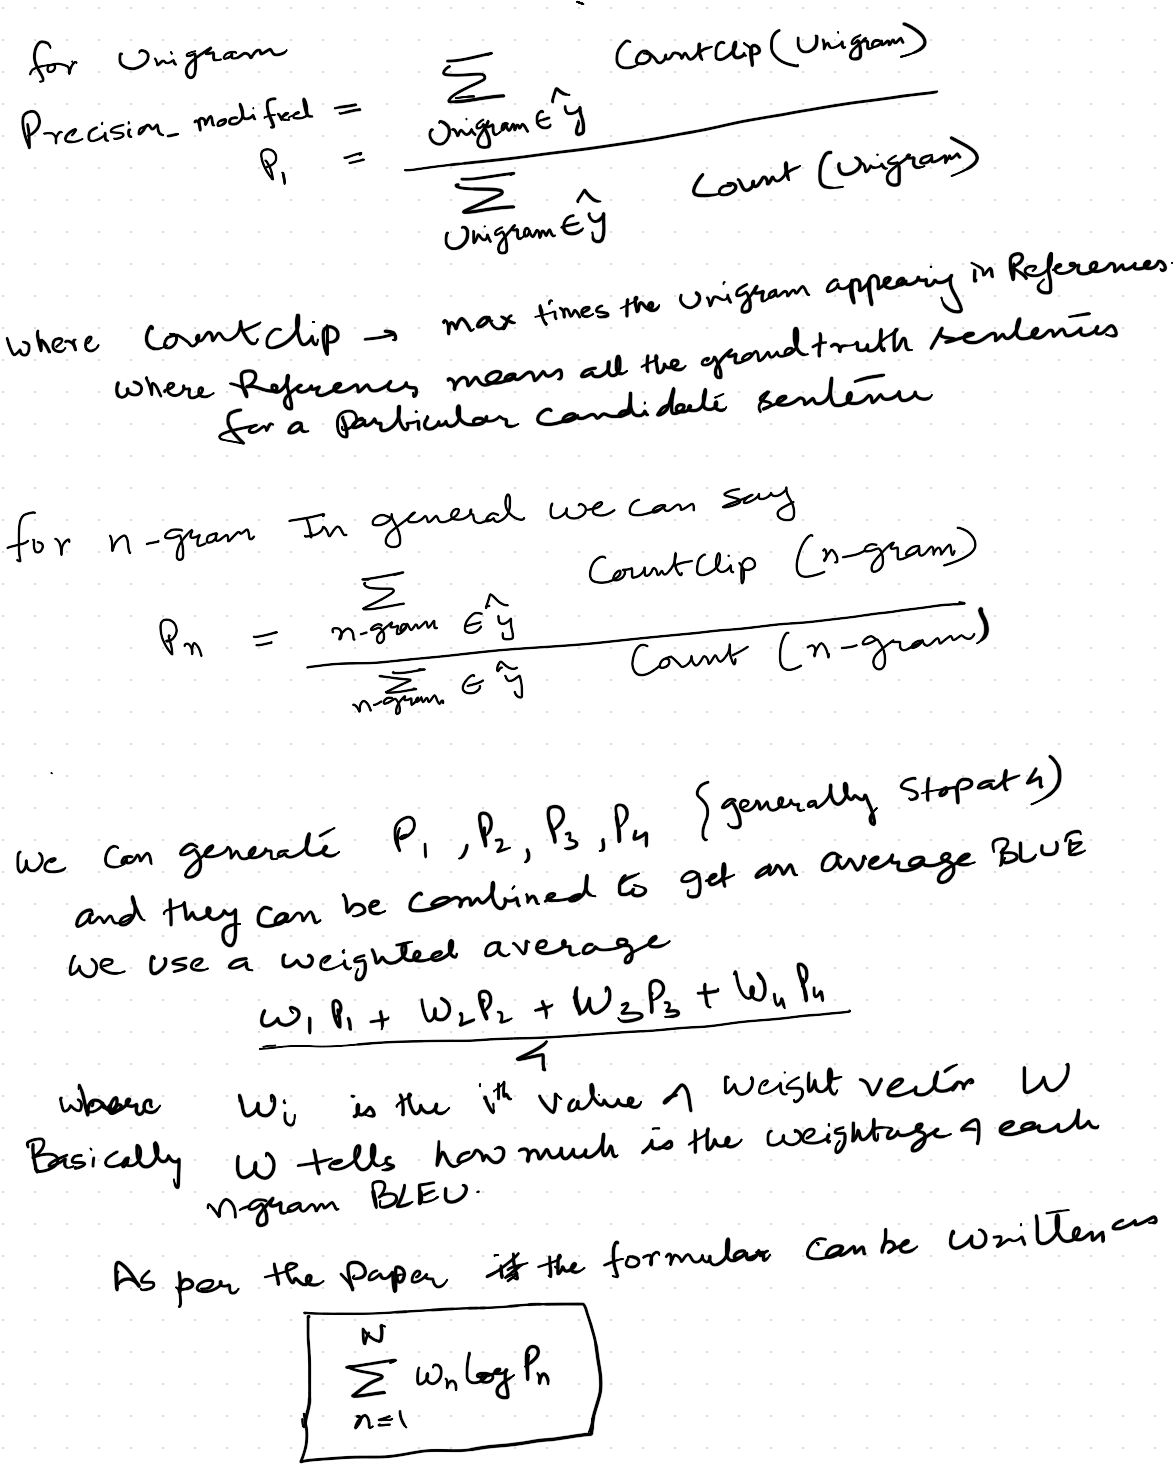 for Unigram
Precision_modified = Σ Unigram ∈ ŷ CountClip (Unigram)
P₁ = Σ Unigram ∈ ŷ Count (Unigram)
where Countclip → max times the Unigram appearing in References.
where References means all the groundtruth sentences
for a particular candidate sentence
for n-gram In general we can say
Pₙ = Σ n-gram ∈ ŷ CountClip (n-gram)
Σ n-gram ∈ ŷ Count (n-gram)
we can generate P₁, P₂, P₃, P₄ {generally Stop at 4)
and they can be combined to get an average BLUE
we use a weighted average
w₁P₁ + W₂P₂ + W₃P₃ + W₄P₄
4
where Wᵢ is the iᵗʰ value of weight vector W
Basically W tells how much is the weightage of each
n-gram BLEU.
As per the paper the formulax can be written as
N
Σ wₙ log Pₙ
n=1